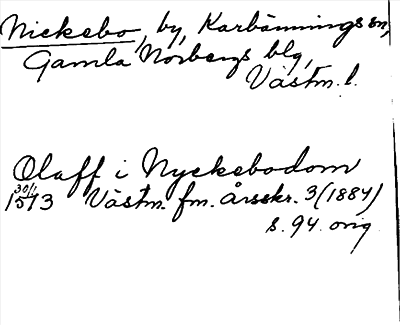 Nickebo, by, Karbännings sn,
Gamla Norbergs blg,
Västm. l.
Olaff i Nyckebodom
30/1
1513 Västm. fm. årsskr. 3 (1884)
s. 94. orig.